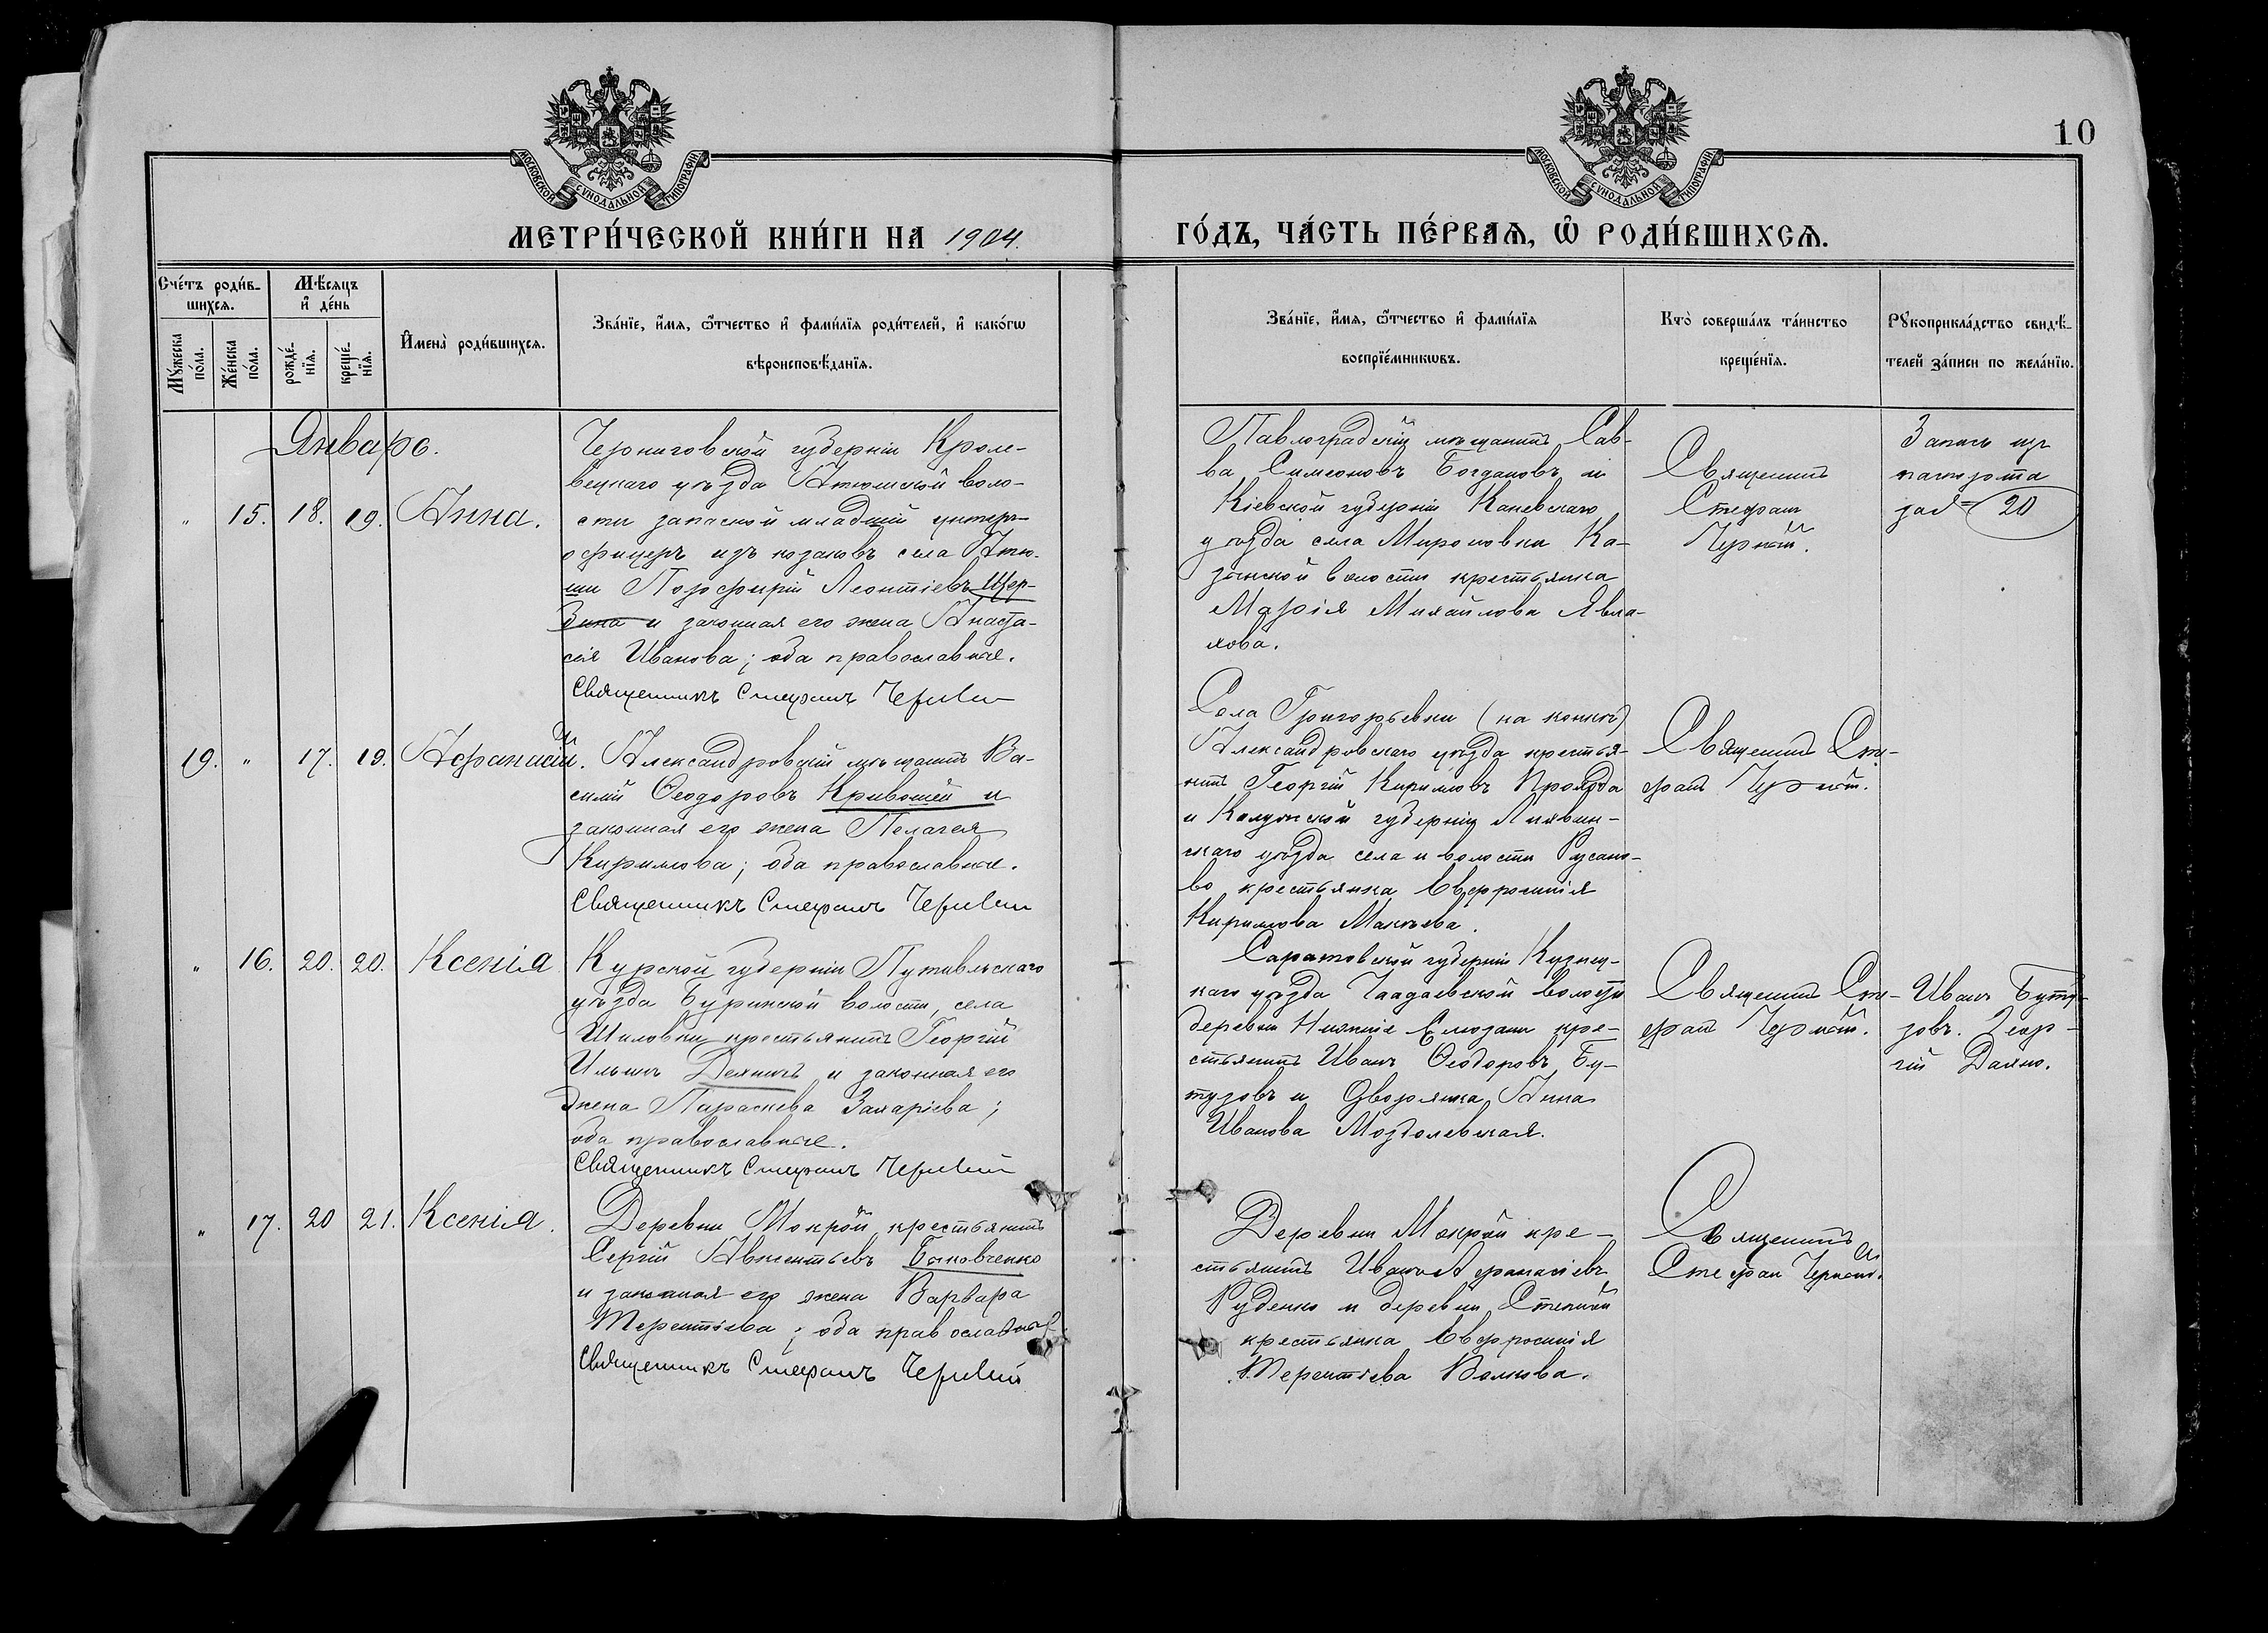 10
МОСКОВСКОЙ СѴНОДАЛЬНОЙ ТИПОГРАФІИ
МОСКОВСКОЙ СѴНОДАЛЬНОЙ ТИПОГРАФІИ
МЕТРИ́ЧЕСКОЙ КНИ́ГИ НА 1904.
ГО́ДЪ, ЧА́СТЬ ПЕ́РВАѦ, Ѽ РОДИ́ВШИХСѦ.
Сче́тъ роди́в-
шихсѧ.
Мѣ́сѧцъ
и҆ де́нь
Мꙋ́жеска
по́ла.
Же́нска
по́ла.
рожде́-
нїѧ.
креще́-
нїѧ.
И҆мена̀ роди́вшихсѧ.
Зва́нїе, и҆́мѧ, ѻ҆́тчество и҆ фами́лїѧ роди́телей, и҆ како́гѡ
вѣроисповѣ́данїѧ.
Зва́нїе, и҆́мѧ, ѻ҆́тчество и҆ фами́лїѧ
воспрїе́мникѡвъ.
Кто̀ соверша́лъ та́инство
креще́нїѧ.
Рꙋкоприкла́дство свидѣ́-
телей за́писи по жела́нїю.
Январь.
" 15. 18. 19. Анна.
Черниговской губерніи Кроле-
вецкаго уѣзда Атюшской воло-
сти запасной младшій унтеръ-
офицеръ изъ козаковъ села Атю-
ши Порфирій Леонтіевъ Щер-
бина и законная его жена Анаста-
сія Иванова; оба православные.
Священникъ Стефанъ Чернявскій
Павлоградскій мѣщанинъ Сав-
ва Симеоновъ Богдановъ и
Кіевской губерніи Каневскаго
уѣзда села Мироновки Ка-
зинской волости крестьянка
Марія Михайлова Явла-
хова.
Священникъ
Стефанъ
Запись изъ
паспорта
за № 20
19. " 17. 19. Афанасій.
Александровскій мѣщанинъ Ва-
силій Ѳеодоровъ Кривошей и
законная его жена Пелагея
Кирилова; оба православные.
Священникъ Стефанъ
Села Григорьевки (на конкѣ)
Александровскаго уѣзда крестья-
нинъ Георгій Кириловъ Прохода
и Калужской губерніи Лихвин-
скаго уѣзда села и волости Русано-
во крестьянка Евфросинія
Кирилова Макѣева.
Священникъ Сте-
фанъ
" 16. 20. 20. Ксенія
Курской губерніи Путивльскаго
уѣзда Бурынской волости, села
Шиловки крестьянинъ Георгій
Ильинъ и законная его
жена Параскева Захаріева;
оба православные.
Священникъ Стефанъ
Саратовской губерніи Кузнец-
каго уѣзда Чаадаевской волости
деревни Нижніе Елюзани кре-
стьянинъ Иванъ Ѳеодоровъ Бу-
тузовъ и дворянка Анна
Иванова Моздолевская.
Священникъ Сте-
фанъ
Иванъ Буту-
зовъ. Геор-
гій
" 17. 20 21. Ксенія.
Деревни Мокрой крестьянинъ
Сергій Авксентьевъ Быковченко
и законная его жена Варвара
Терентіева; оба православные.
Священникъ Стефанъ
Деревни Мокрой кре-
стьянинъ Иванъ Афанасіевъ
Руденко и деревни Степной
крестьянка Евфросинія
Терентіева Волкова.
Священникъ
Стефан